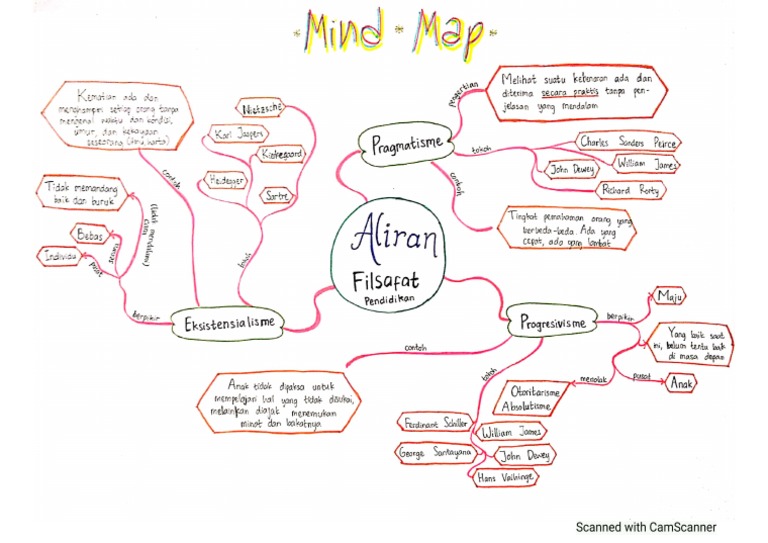 Mind Map
Melihat suatu kebenaran ada dan
diterima secara praktis tanpa pen-
jelasan yang mendalam
pengertian
Pragmatisme
tokoh
Charles Sanders Peirce
William James
John Dewey
Richard Rorty
contoh
Tingkat pemahaman orang yang
berbeda-beda. Ada yang
cepat, ada yang lambat
Kematian ada dan
menghampiri setiap orang tanpa
mengenal waktu dan kondisi,
umur, dan kekayaan
seseorang
contoh
Nietzsche
Karl Jaspers
Kierkegaard
Heidegger
Sartre
tokoh
Tidak memandang
baik dan buruk
Bebas
Individu
pusat
berpikir
Eksistensialisme
Aliran
Filsafat
Pendidikan
Progresivisme
berpikir
Maju
Yang baik saat
ini, belum tentu baik
di masa depan
pusat
Anak
menolak
Otoritarisme
Absolutisme
contoh
Anak tidak dipaksa untuk
mempelajari hal yang tidak disukai,
melainkan diajak menemukan
minat dan bakatnya
tokoh
Ferdinant Schiller
William James
George Santayana
John Dewey
Hans Vaihinge
Scanned with CamScanner